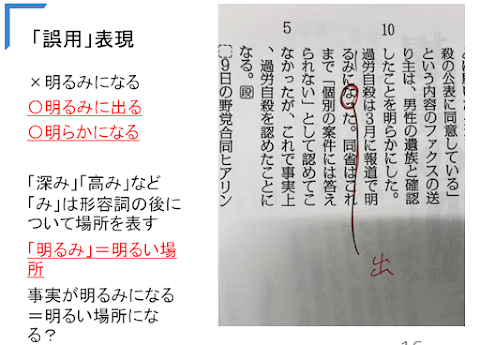 「誤用」表現
×明るみになる
〇明るみに出る
〇明らかになる
「深み」「高み」など
「み」は形容詞の後に
ついて場所を表す
「明るみ」＝明るい場
所
事実が明るみになる
＝明るい場所にな
る？
10
5
殺の公表に同意している」
という内容のファクスの送
り主は、男性の遺族と確認
したことを明らかにした。
過労自殺は３月に報道で明
るみになった。同省はこれ
まで「個別の案件には答え
られない」として認めてこ
なかったが、これで事実上
、過労自殺を認めたことに
なる。
９日の野党合同ヒアリン
出
16